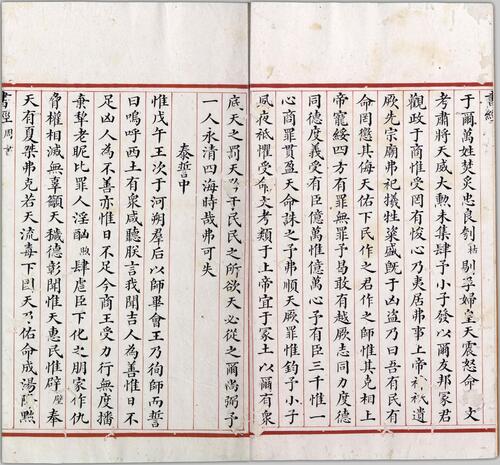 書經
于爾萬姓焚炙忠良刳枯剔孕婦皇天震怒命文
考肅將天威大勳未集肆予小子發以爾友邦冢君
觀政于商惟受罔有悛心乃夷居弗事上帝神祇遺
厥先宗廟弗祀犧牲粢盛既于凶盜乃曰吾有民有
命罔懲其侮天佑下民作之君作之師惟其克相上
帝寵綏四方有罪無罪予曷敢有越厥志同力度德
同德度義受有臣億萬惟億萬心予有臣三千惟一
心商罪貫盈天命誅之予弗順天厥罪惟鈞予小子
夙夜祗懼受命文考類于上帝宜于冢土以爾有衆
底天之罰天矜于民民之所欲天必從之爾尚弼予
一人永清四海時哉弗可失
泰誓中
惟戊午王次于河朔羣后以師畢會王乃徇師而誓
曰嗚呼西土有衆咸聽朕言我聞吉人為善惟日不
足凶人為不善亦惟日不足今商王受力行無度播
棄犂老昵比罪人淫酗肆虐臣下化之朋家作仇
脅權相滅無辜籲天穢德彰聞惟天惠民惟辟壁奉
天有夏桀弗克若天流毒下國天乃佑命成湯降黜
書經周書